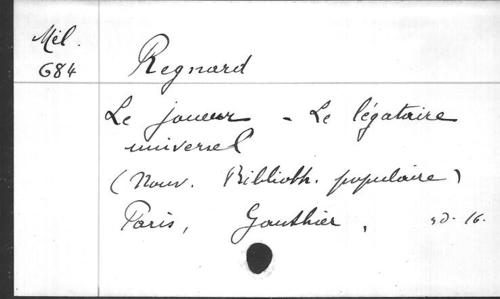 Mél.
684
Regnard
Le joueur - Le légataire
universel
(Nouv. Biblioth. populaire)
Paris, Gauthier, sd. 16.